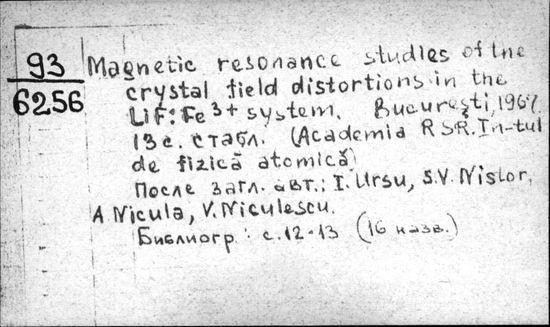 93
6256
Magnetic resonance studies of the
crystal field distortions in the
LiF:Fe³⁺ system. Bucureşti, 1967.
13 с. с табл. (Academia RSR. In-tul
de fizică atomică)
После загл. авт.: I. Ursu, S.V. Nistor,
A. Nicula, V. Niculescu.
Библиогр.: с. 12-13 (16 назв.)